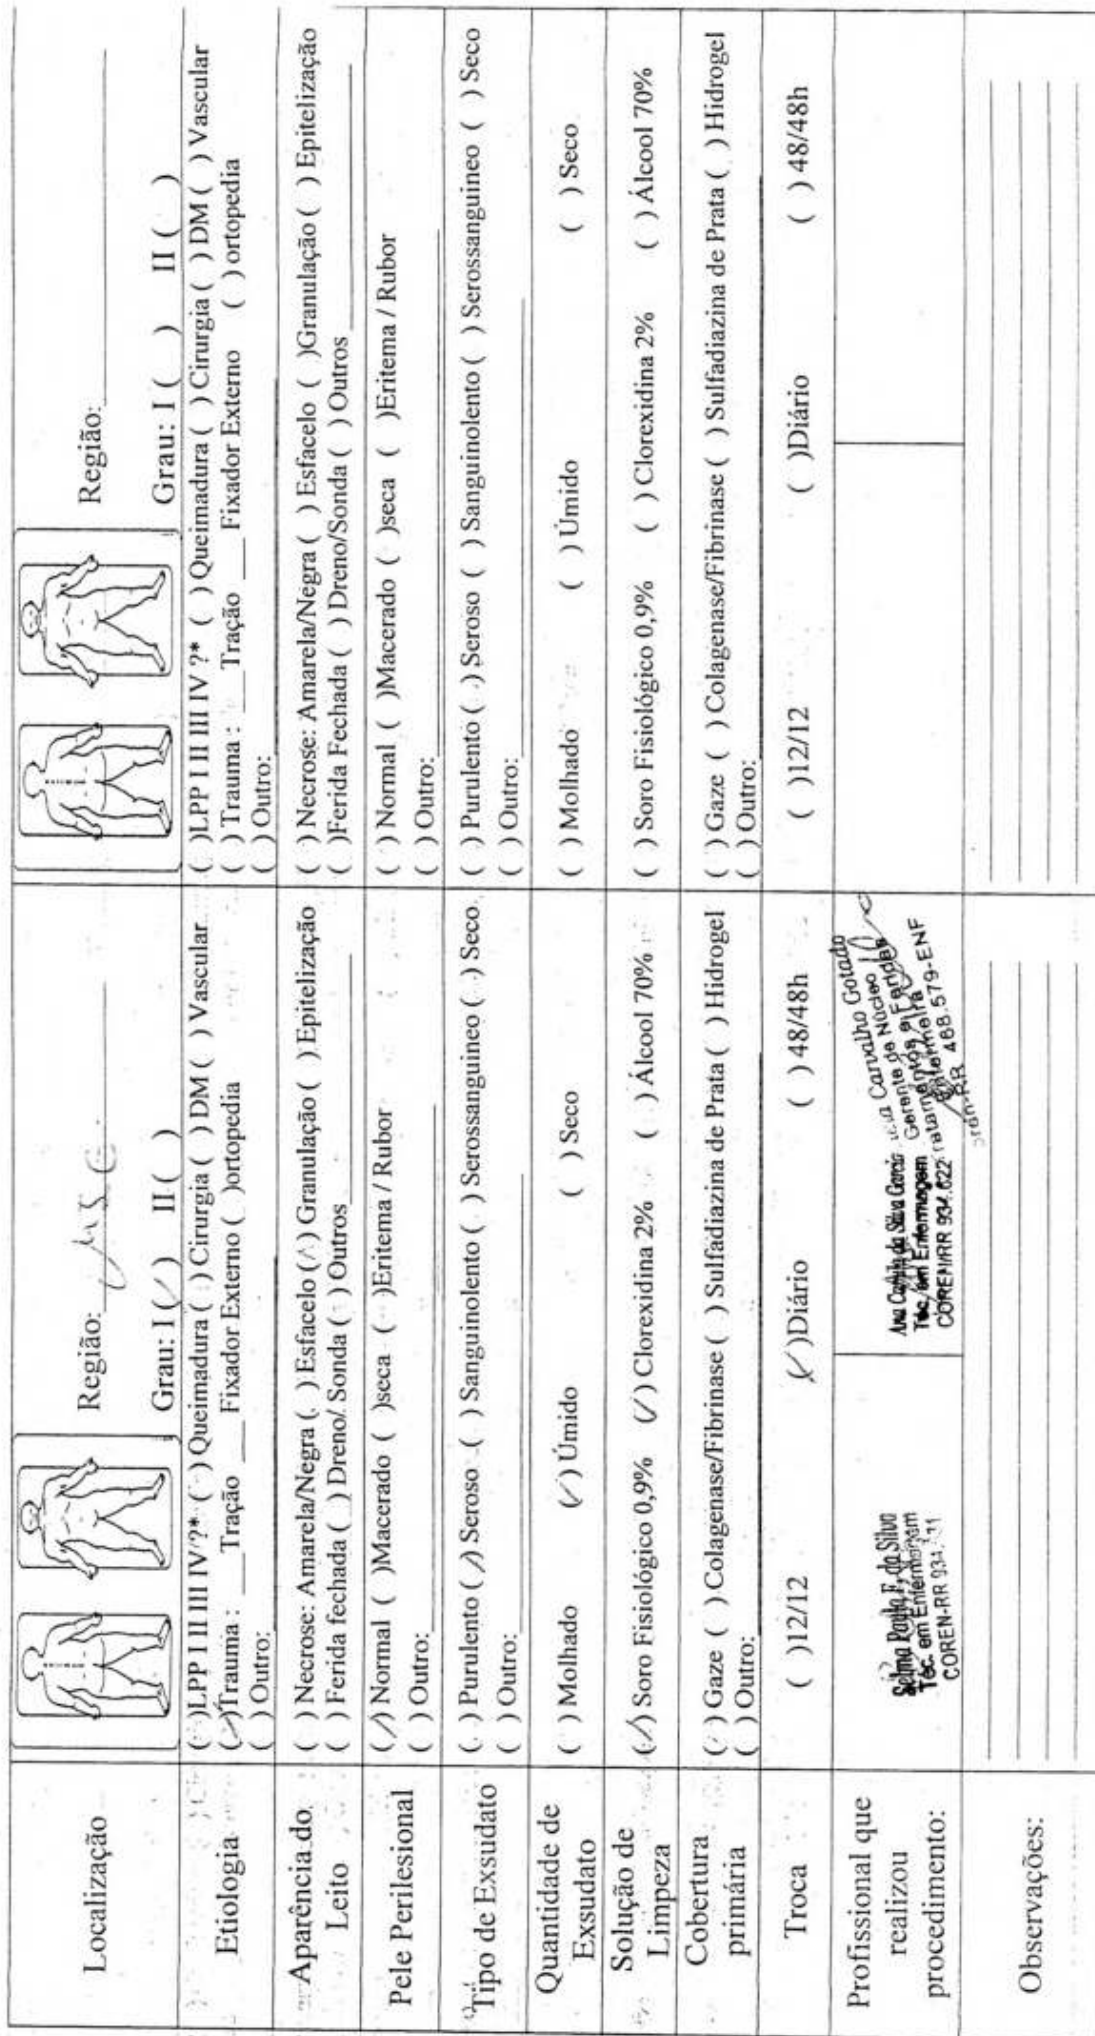 Localização
Região: MSE
Grau: I (✓) II ( )
Região:
Grau: I ( ) II ( )
Etiologia
( )LPP I II III IV ?* ( ) Queimadura ( ) Cirurgia ( ) DM ( ) Vascular
(✓)Trauma : ___Tração ___Fixador Externo ( )ortopedia
( ) Outro:
( )LPP I II III IV ?* ( ) Queimadura ( ) Cirurgia ( ) DM ( ) Vascular
( ) Trauma : ___Tração ___Fixador Externo ( ) ortopedia
( ) Outro:
Aparência do
Leito
( ) Necrose: Amarela/Negra ( ) Esfacelo (✓) Granulação ( ) Epitelização
( ) Ferida fechada ( ) Dreno/ Sonda ( ) Outros
( ) Necrose: Amarela/Negra ( ) Esfacelo ( )Granulação ( ) Epitelização
( )Ferida Fechada ( ) Dreno/Sonda ( ) Outros
Pele Perilesional
(✓) Normal ( )Macerado ( )seca ( )Eritema / Rubor
( ) Outro:
( ) Normal ( )Macerado ( )seca ( )Eritema / Rubor
( ) Outro:
Tipo de Exsudato
( ) Purulento (✓) Seroso ( ) Sanguinolento ( ) Serossanguineo ( ) Seco
( ) Outro:
( ) Purulento ( ) Seroso ( ) Sanguinolento ( ) Serossanguineo ( ) Seco
( ) Outro:
Quantidade de
Exsudato
( ) Molhado (✓) Úmido ( ) Seco
( ) Molhado ( ) Úmido ( ) Seco
Solução de
Limpeza
(✓) Soro Fisiológico 0,9% (✓) Clorexidina 2% ( ) Álcool 70%
( ) Soro Fisiológico 0,9% ( ) Clorexidina 2% ( ) Álcool 70%
Cobertura
primária
( ) Gaze ( ) Colagenase/Fibrinase ( ) Sulfadiazina de Prata ( ) Hidrogel
( ) Outro:
( ) Gaze ( ) Colagenase/Fibrinase ( ) Sulfadiazina de Prata ( ) Hidrogel
( ) Outro:
Troca
( )12/12 (✓)Diário ( ) 48/48h
( )12/12 ( )Diário ( ) 48/48h
Profissional que
realizou
procedimento:
Selma Paula F. da Silva
Téc. em Enfermagem
COREN-RR 934.
Ana da Silva
Téc. em Enfermagem
COREN/RR 934.622
Carvalho Gotado
Gerente de Núcleo
Feridas
Enfermeira
468.579-ENF
Observações: